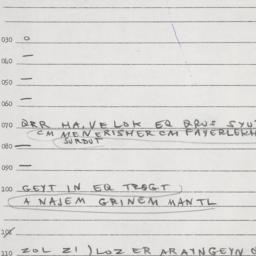 030 o
040 —
050 —
060 —
070 ҨRR HA, VE LOK EQ
CM MENERISHER CM FAYERLEKH
080 — SURDUT
090 —
100 GEYT IN EQ TROGT
A NAJEM GRINEM MANTL
110 ZOL ZI) LOZ ER ARAYNGEYN